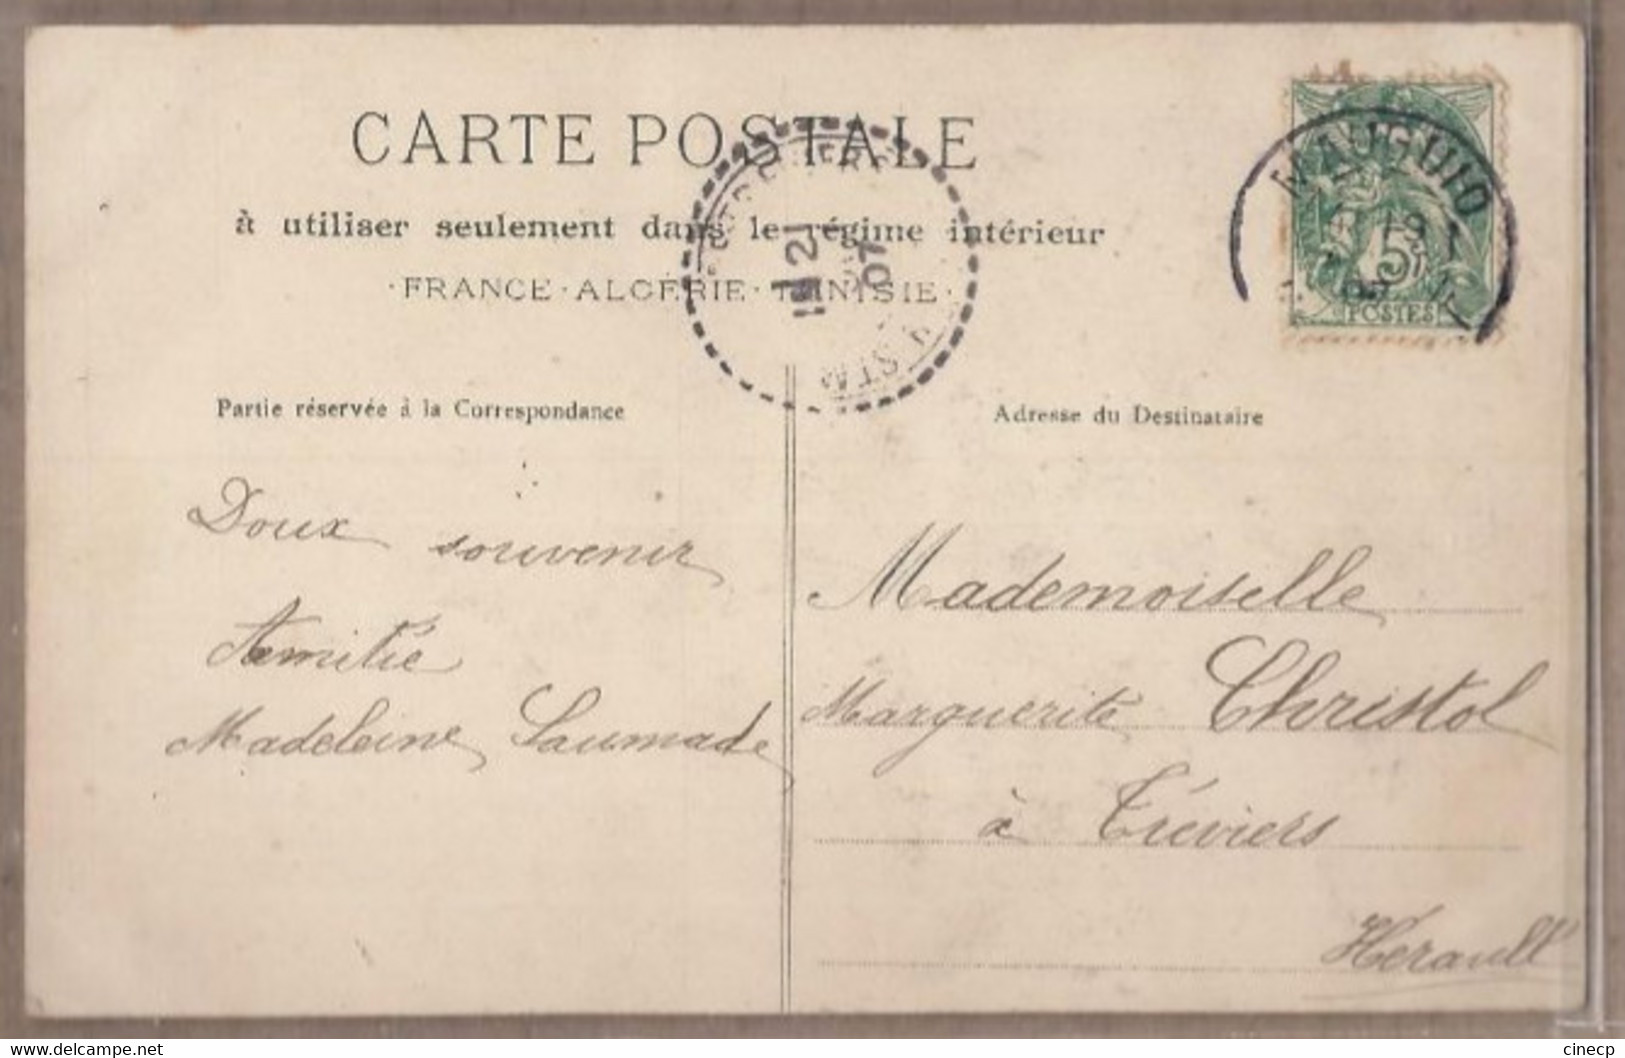 CARTE POSTALE
à utiliser seulement dans le régime intérieur
·FRANCE·ALGÉRIE·TUNISIE·
MAUGUIO
5
POSTES
21
07
Partie réservée à la Correspondance
Adresse du Destinataire
Doux souvenir
Amitié
Madeleine Saumade
Mademoiselle
Marguerite Christol
à Tréviers
Herault
delcampe.net
cinecp